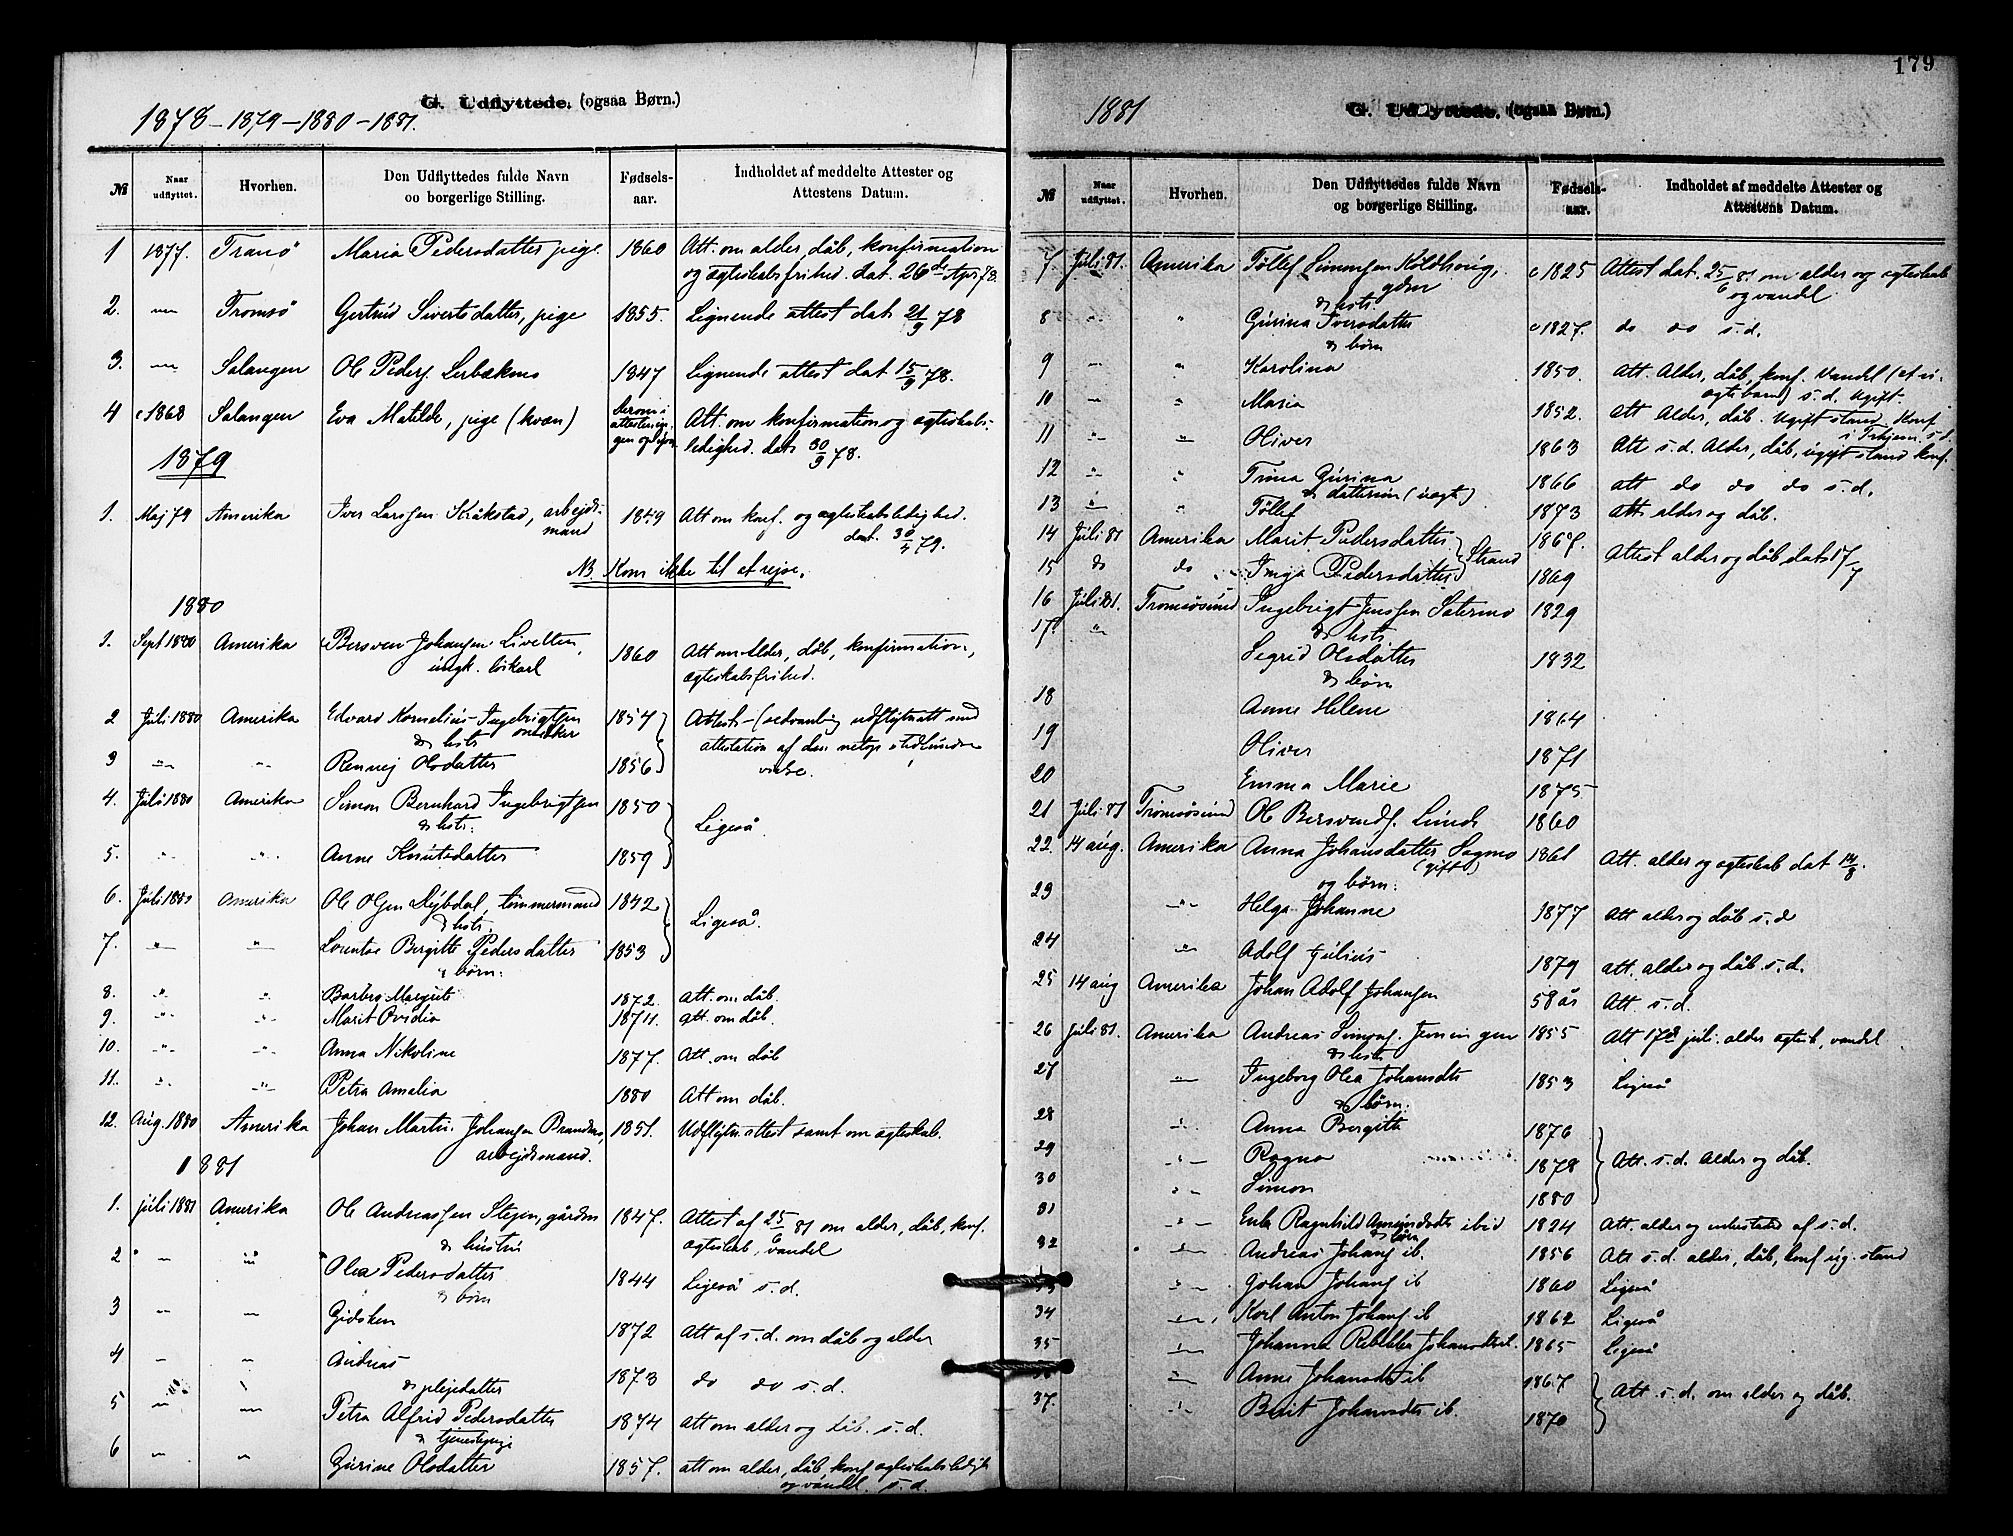 G. Udflyttede. (ogsaa Børn.)
1878-1879-1880-1881.
№ Naar udflyttet. Hvorhen. Den Udflyttedes fulde Navn oo borgerlige Stilling. Fødsels-aar. Indholdet af meddelte Attester og Attestens Datum.
1 1877. Tranö Maria Pedersdatter pige. 1860 Att. om alder, dåb, konfirmation
og ægteskabsfrihed. dat. 26de Apr. 78.
2. — Tromsö Gertrud Sivertsdatter, pige 1855. Lignende attest dat. 21/9 78
3. — Salangen Ole Peders. Lerbækmo 1847 Lignende attest dat 15/9 78.
4 c 1868 Salangen Eva Matilde, pige (kvæn) Att. om konfirmation og ægteskabs-
ledighed. dat. 30/9 78.
1879
1. Maj 79 Amerika Iver Larssen Kråkstad, arbejds- 1849 Att om konf. og ægteskabsledighed.
mand dat. 30/4 79.
NB. Kom ikke til at rejse.
1880
1. Sept 1880 Amerika Bersven Johansen Livelten, 1860 Att om alder, dåb, konfirmation,
ungk. ægteskabsfrihed.
2 Juli 1880 Amerika Edvard Kornelius Ingebrigtsen 1854 Attest
& hstr. attestation af den netop
3 — — Rennej Olsdatter 1856
4. Juli 1880 Amerika Simon Bernhard Ingebrigtsen 1850
& hstr. Ligeså.
5. " " Anne Knutsdatter 1859
6. Juli 1880 Amerika Ole Olsen Nybdal, tømmermand 1842
& hstr. Ligeså.
7. — — Lorentse Bergitte Pedersdatter 1853
" børn:
8. " " Barbro Margrete 1872. Att. om dåb.
9. " " Marit Ovidia 1874. Att. om dåb.
10. " " Anna Nikoline 1877. Att. om dåb
11. " " Petra Amalia 1880 Att om dåb.
12. Aug. 1880 Amerika Johan Martin Johansen Brandmo, 1851. Udflytn. attest samt om ægteskab.
arbejdsmand.
1881
1. juli 1881 Amerika Ole Andreassen Stejen, gårdm 1847. Attest af 25/6 81 om alder, dåb, konf.
& hustru ægteskab, vandel
2 — " Olea Pedersdatter 1844 Ligeså s. d.
& børn
3 — — Gidsken 1872 Att af s. d. om dåb og alder
4 — — Andreas 1873 do do s. d.
& plejedatter
5 — — Petra Alfrid Pedersdatter 1874 Att om alder og dåb. s. d.
& tjenestepige
6 — — Gurine Olsdatter 1857. att om alder, dåb, konf. ægteskabsledighed
og vandel. s. d.
179
1881
G. Udflyttede. (ogsaa Børn.)
№ Naar udflyttet. Hvorhen. Den Udflyttedes fulde Navn og borgerlige Stilling. Fødsels-aar. Indholdet af meddelte Attester og Attestens Datum.
7. Juli 81. Amerika Tollef Simonsen Koldhoug, c 1825 Attest dat. 25/6 81 om alder og ægteskab
gdm og vandel
& hstr
8 " " Gurina Iversdatter c 1827. do do s. d.
& børn
9 — " Karolina 1850. Att. Alder, dåb, konf. Vandel
ægtebarn) s. d. Ugift.
10 — " Maria 1852. Att Alder, dåb. Ugift stand Konf
11 " " Oliver 1863 Att s. d. Alder, dåb, ugift stand konf.
12 " " Trina Gurina 1866 att do do do s. d.
& dattersøn (uægt.)
13 " " Tollef 1873 att. alder og dåb.
14 Juli 81 Amerika Marit Pedersdatter 1867. Strand
Attest alder og dåb dat 17/7
15 do do Inga Pedersdatter 1869
16 Juli 81. Tromsösund Ingebrigt Jenssen Satermo 1829
& hstr
17. " Sigrid Olsdatter 1832
& børn
18 Anne Helene 1864
19 Oliver 1871
20 Emma Marie 1875
21 Juli 81 Tromsösund Ole Bersvends. Lund 1860
22. 14 aug. Amerika Anna Johansdatter Sagmo 1861 Att. alder og ægteskab dat 14/8.
(gift)
og børn:
23 " Helga Johanne 1877 Att. alder og dåb s. d
24 " Adolf Julius 1879 att. alder og dåb s. d.
25 14 aug Amerika Johan Adolf Johansen 58 år Att. s. d.
26 Juli 81. Amerika Andreas Simons. 1855 Att juli. alder ægtesk., vandel
& hstr
27 — Ingeborg Olea Johansdtr 1853 Ligeså
& børn:
28 " Anna Bergitte 1876
29 " Ragna 1878 Att. s. d. Alder og dåb.
30 " Simon 1880
31 " Enke Ragnhild Amundsdtr ibid 1824 Att. alder og enkestand af s. d.
& børn
32 — Andreas Johans. ib. 1856 Att s. d. alder, dåb, konf ug. stand
33 " Johan Johans. ib 1860 Ligeså
34 " Karl Anton Johans. ib 1862 Ligeså
35 — Johanna Rebekka Johansdtr. 1865 Ligeså
" Anne Johansdtr ib 1867
Att. s. d. om alder og dåb.
37. " Berit Johansdtr ib. 1870